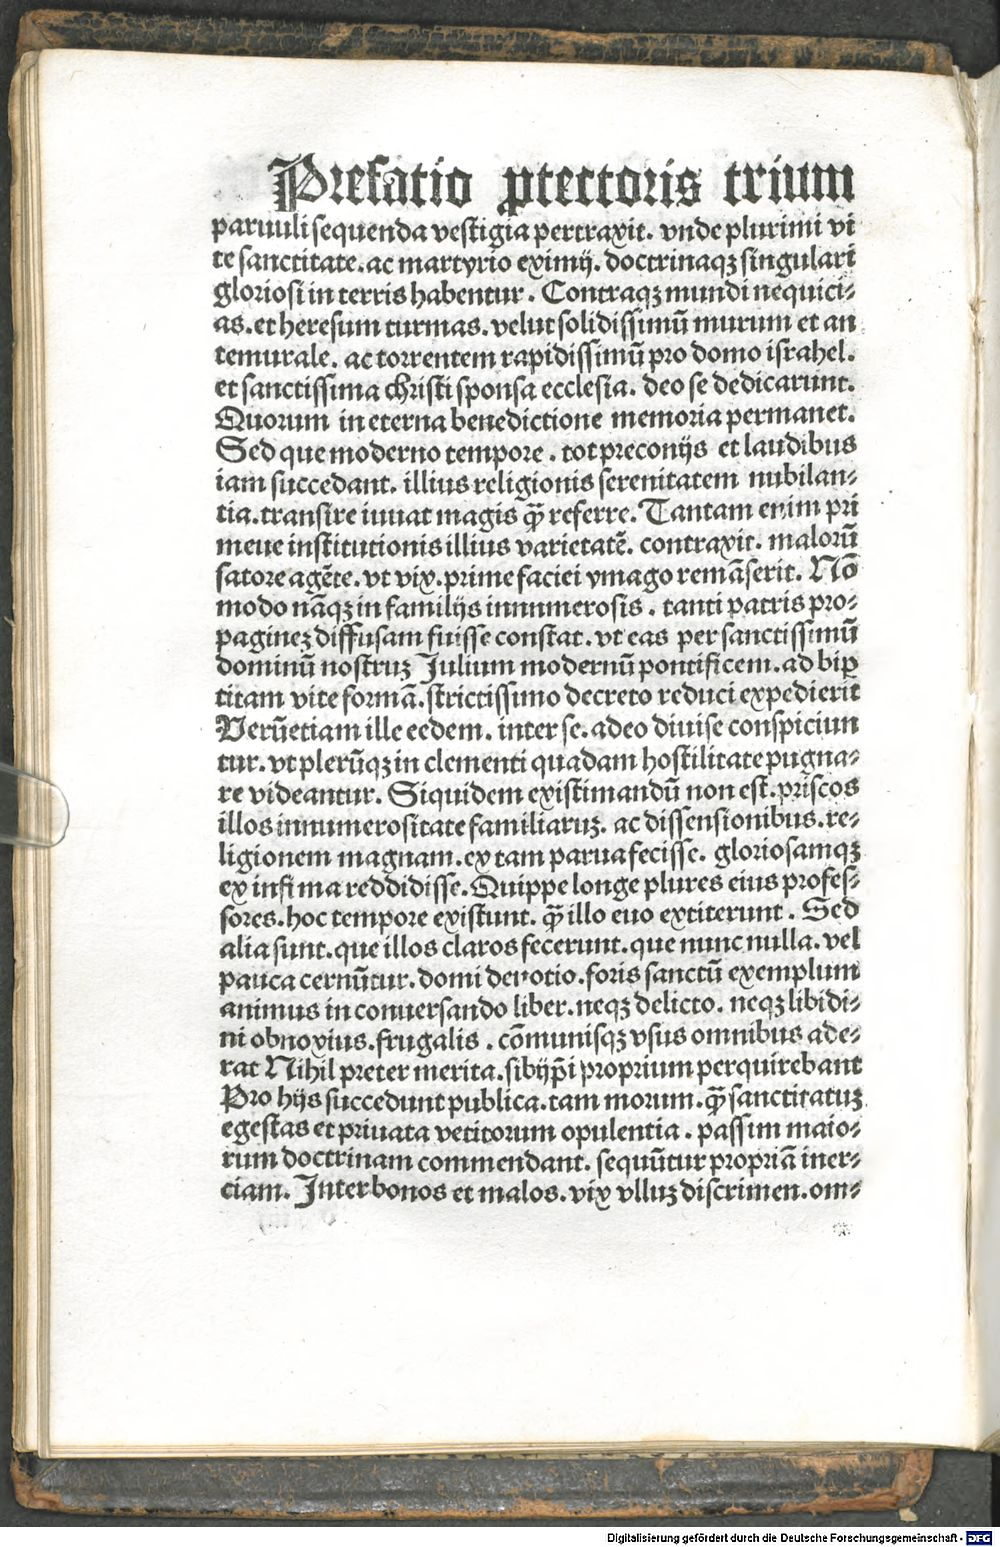 Prefatio ꝓtectoris trium
paruuli sequenda vestigia pertraxit. vnde plurimi vi
te sanctitate. ac martyrio eximij. doctrinaqꝫ singulari
gloriosi in terris habentur. Contraqꝫ mundi nequici⸗
as. et heresum turmas. velut solidissimū murum et an
temurale. ac torrentem rapidissimū pro domo israhel.
et sanctissima christi sponsa ecclesia. deo se dedicarunt.
Quorum in eterna benedictione memoria permanet.
Sed que moderno tempore. tot preconijs et laudibus
iam succedant. illius religionis serenitatem nubilan⸗
tia. transire iuuat magis q̄ȝ referre. Tantam enim pri
meue institutionis illius varietatē. contraxit. malorū
satore agēte. vt vix. prime faciei ymago remāserit. Nō
modo nāqꝫ in familijs innumerosis. tanti patris pro⸗
pagineꝫ diffusam fuisse constat. vt eas per sanctissimū
dominū nostruꝫ Julium modernū pontificem. ad biꝑ
titam vite formā. strictissimo decreto reduci expedierit
Verūetiam ille eedem. inter se. adeo diuise conspiciun
tur. vt plerūqꝫ in clementi quadam hostilitate pugna⸗
re videantur. Siquidem existimandū non est. priscos
illos innumerositate familiaruꝫ. ac dissensionibus. re⸗
ligionem magnam. ex tam parua fecisse. gloriosamqꝫ
ex infima reddidisse. Quippe longe plures eius profes⸗
sores. hoc tempore existunt. q̄ȝ illo euo extiterunt. Sed
alia sunt. que illos claros fecerunt. que nunc nulla. vel
pauca cernūtur. domi deuotio. foris sanctū exemplum
animus in conuersando liber. neqꝫ delicto. neqꝫ libidi⸗
ni obnoxius. frugalis. cōmunisqꝫ vsus omnibus ade⸗
rat Nihil preter merita. sibijp̄i proprium perquirebant
Pro hijs succedunt publica. tam morum. q̄ȝ sanctitatuꝫ
egestas et priuata vetitorum opulentia. passim maio⸗
rum doctrinam commendant. sequūtur propriā iner⸗
ciam. Inter bonos et malos. vix vlluꝫ discrimen. om⸗
Digitalisierung gefördert durch die Deutsche Forschungsgemeinschaft - DFG